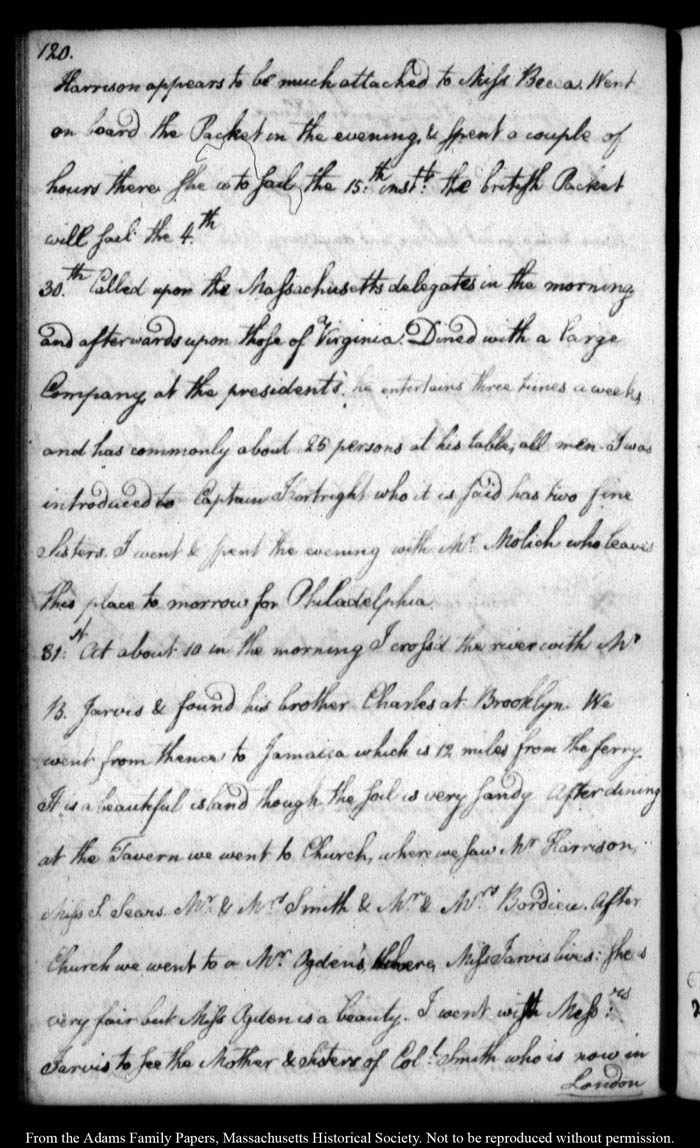 120.
Harrison appears to be much attached to Miss Becca. Went
on board the Packet in the evening, & spent a couple of
hours there she is to sail the 15.th inst.t the british Packet
will sail the 4.th
30.th Called upon the Massachusetts delegates in the morning
and afterwards upon those of Virginia. Dined with a large
Company, at the president's. he entertains three times a week,
and has commonly about 25 persons at his table; all men. I was
introduced to Captain Kortright who it is said has two fine
Sisters. I went & spent the evening with Mr. Molich who leaves
this place to morrow for Philadelphia.
31.st At about 10 in the morning I cross'd the river with Mr
B. Jarvis & found his brother Charles at Brooklyn. We
went from thence to Jamaica which is 12 miles from the ferry.
It is a beautiful island though the soil is very sandy After dining
at the Tavern we went to Church, where we saw Mr Harrison,
Miss S. Sears Mr. & Mrs Smith & Mr. & Mrs Bordieu. After
Church we went to a Mr Ogden's, where, Miss Jarvis lives: she is
very fair but Miss Ogden is a beauty. I went with Mess:rs
Jarvis to see the Mother & Sisters of Col:l Smith who is now in
London
From the Adams Family Papers, Massachusetts Historical Society. Not to be reproduced without permission.